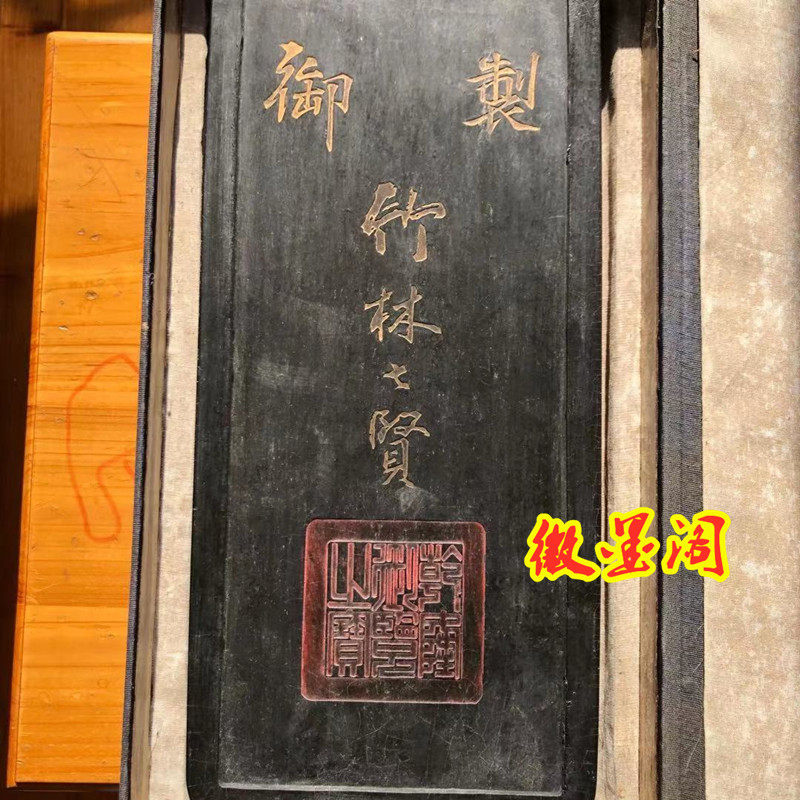 御製
竹林七賢
乾隆御覽之寶
徽墨阁